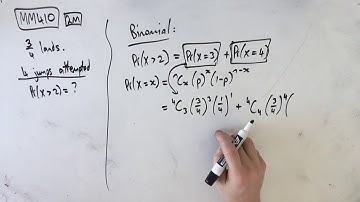 MM410 2M
3/4 lands.
4 jumps attempted
Pr(X>2)=?
Binomial:
Pr(X>2) = Pr(X=3) + Pr(X=4)
Pr(X=x) = ⁿCₓ (p)ˣ (1-p)ⁿ⁻ˣ
= ⁴C₃ (3/4)³ (1/4)¹ + ⁴C₄ (3/4)⁴ (